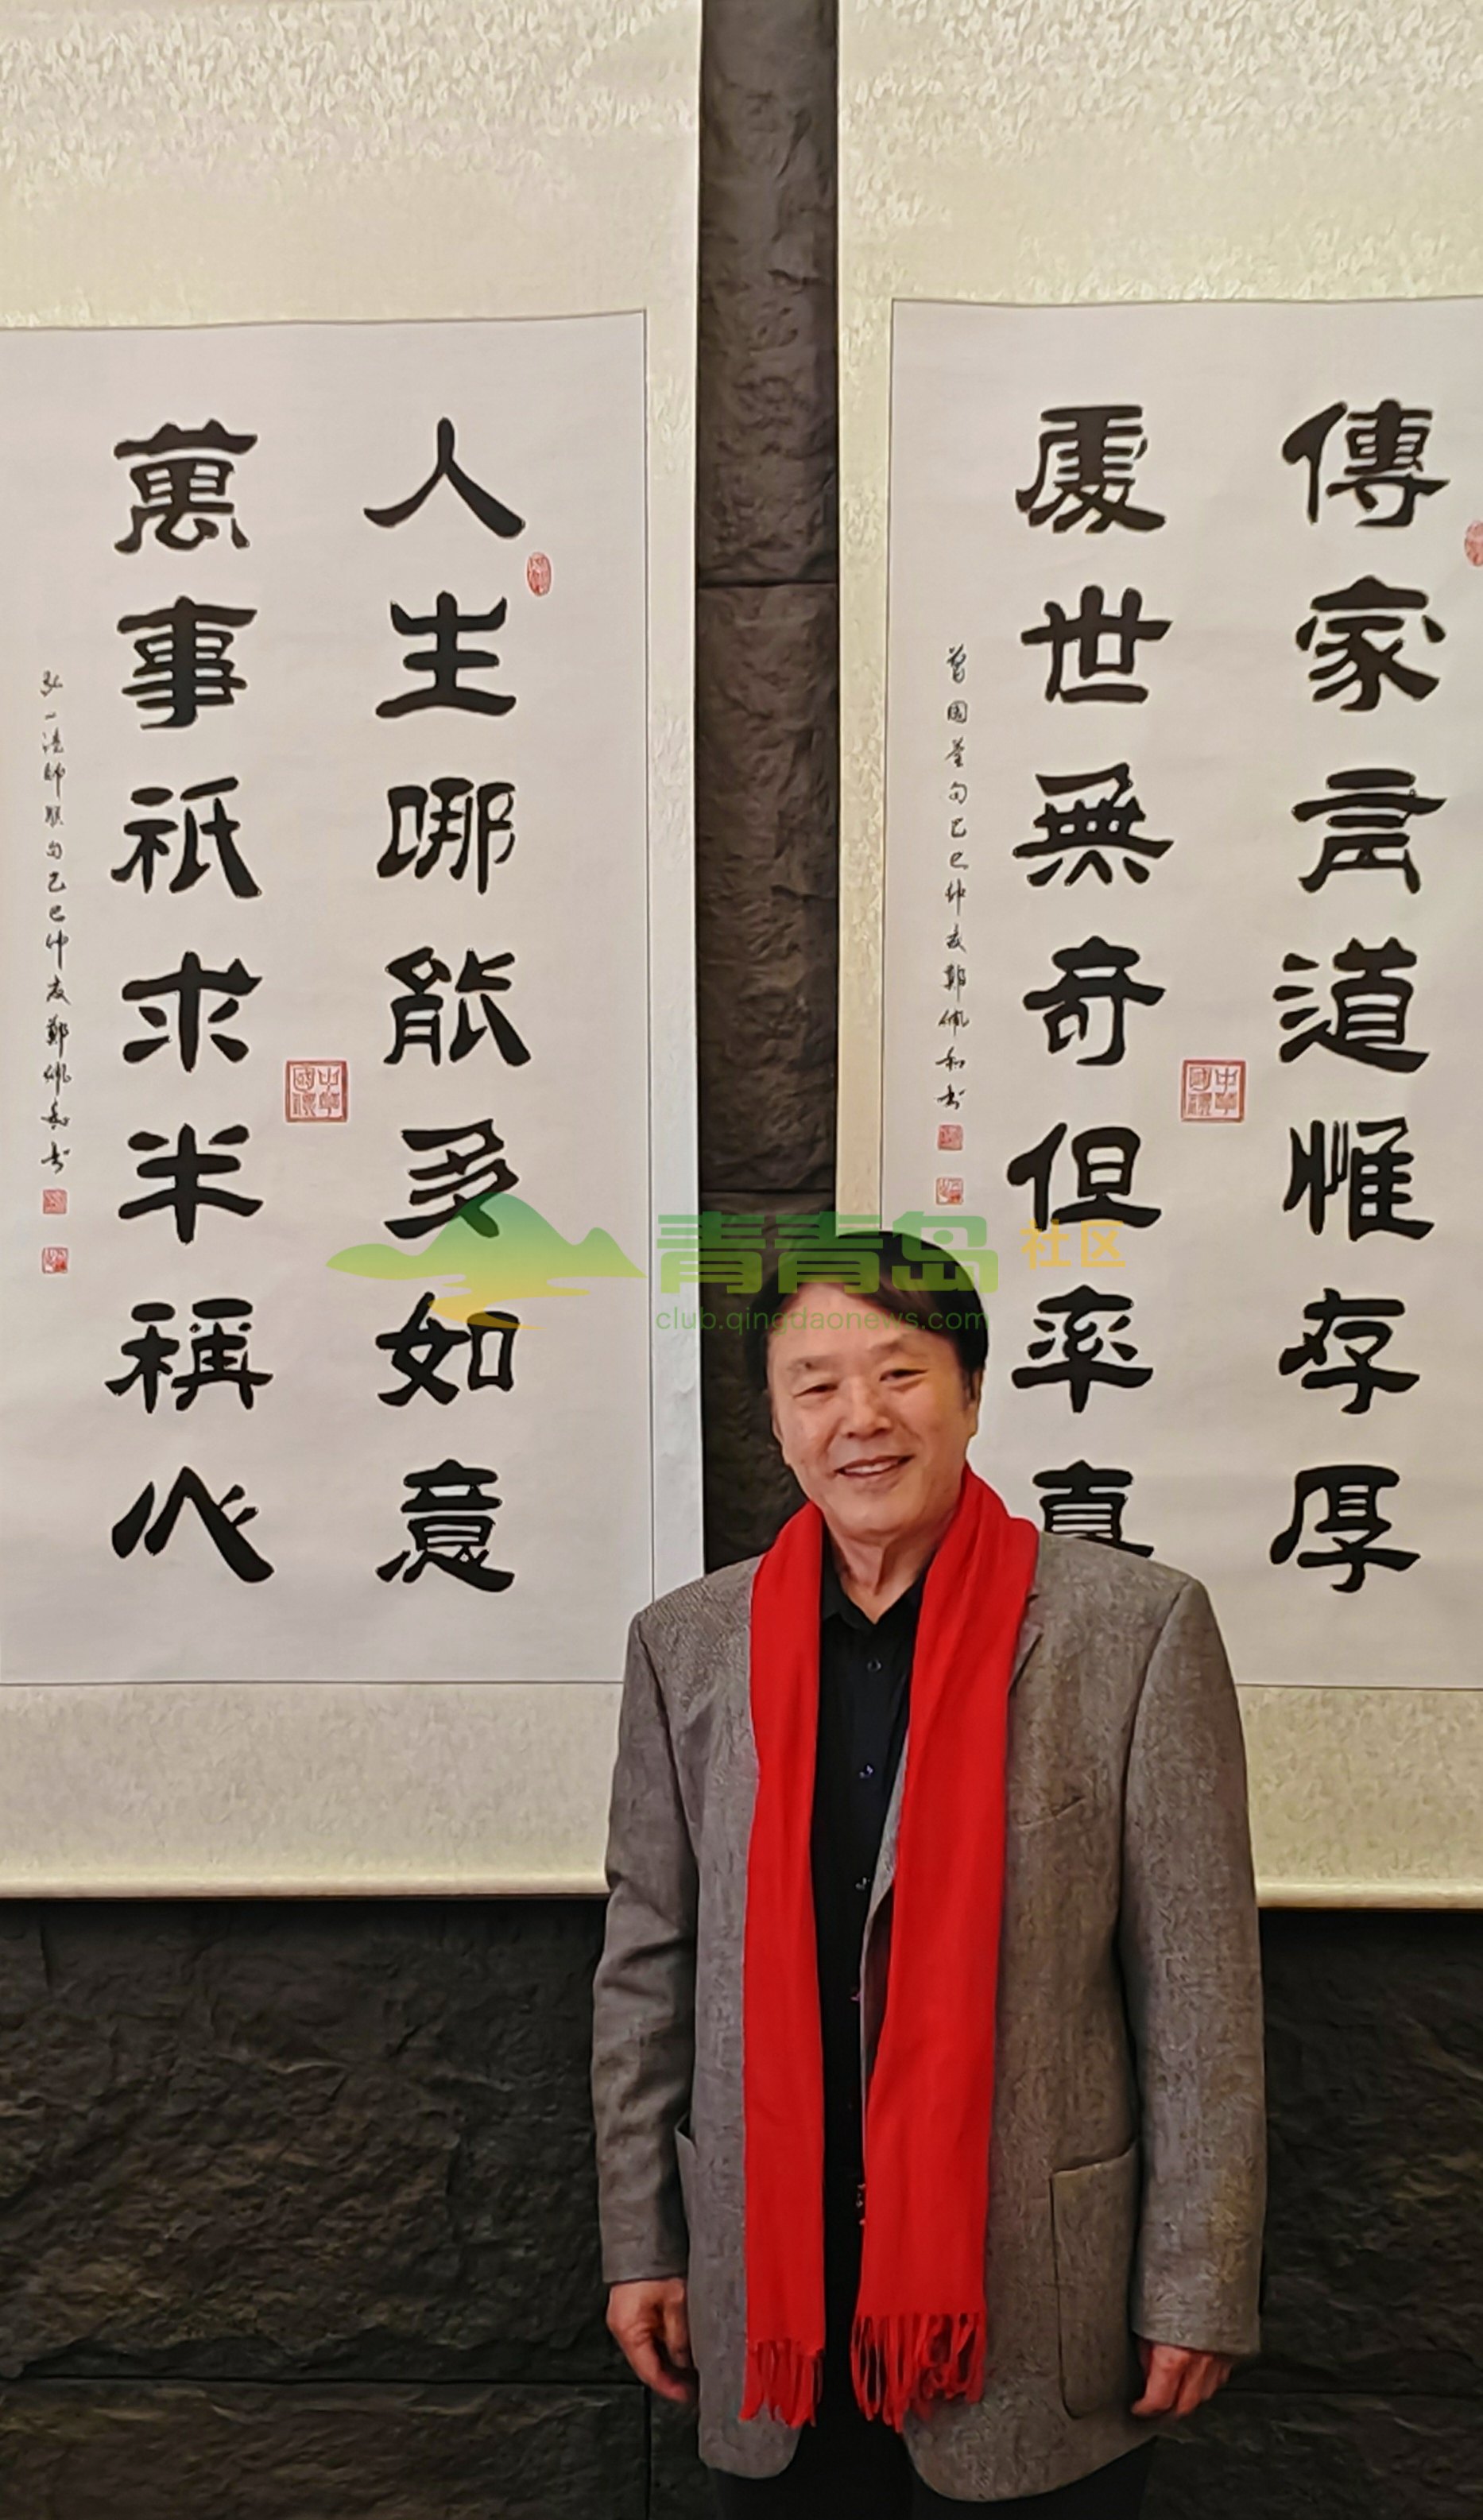 傳家言道惟存厚
處世無奇但率真
曾國藩句乙巳仲夏鄭佩和書
人生哪能多如意
萬事祇求半稱心
弘一法師聯句乙巳仲夏鄭佩和書
青青岛社区
club.qingdaonews.com